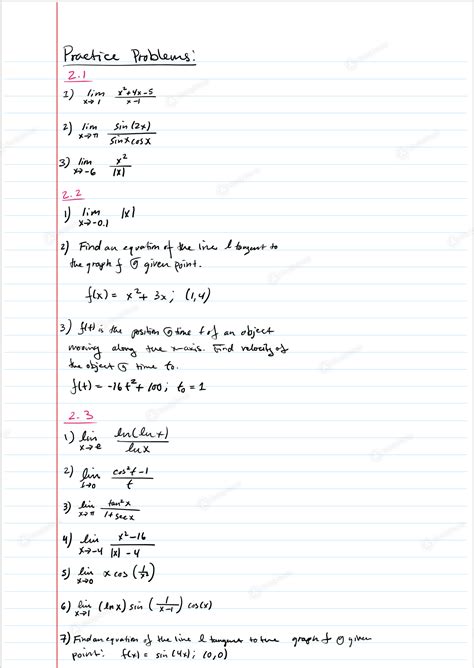 Practice Problems:
2.1
1) lim x→1 (x²+4x-5)/(x-1)
2) lim x→π sin(2x)/(sinx cosx)
3) lim x→-6 x²/|x|
2.2
1) lim x→-0.1 |x|
2) Find an equation of the line l tangent to
the graph f @ given point.
f(x) = x² + 3x; (1,4)
3) f(t) is the position @ time t of an object
moving along the x-axis. Find velocity of
the object @ time t₀.
f(t) = -16t² + 100; t₀ = 1
2.3
1) lim x→e ln(ln t)/ln x
2) lim t→0 (cos²t-1)/t
3) lim x→π tan²x/(1+secx)
4) lim x→-4 (x²-16)/(|x|-4)
5) lim x→0 x cos(1/x³)
6) lim x→1 (lnx) sin(1/(x-1)) cos(x)
7) Find an equation of the line l tangent to the graph f @ given
point: f(x) = sin(4x); (0,0)